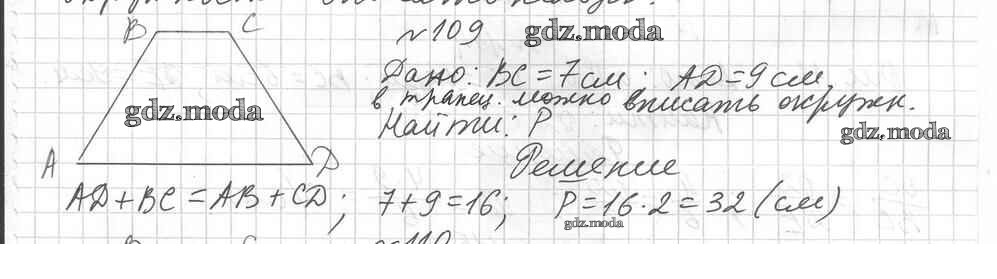 B C
№109 gdz.moda
Дано: BC = 7 см; AD = 9 см,
в трапец. можно вписать окружн.
gdz.moda
Найти: P gdz.moda
A D
Решение
AD + BC = AB + CD; 7 + 9 = 16; P = 16 · 2 = 32 (см)
gdz.moda